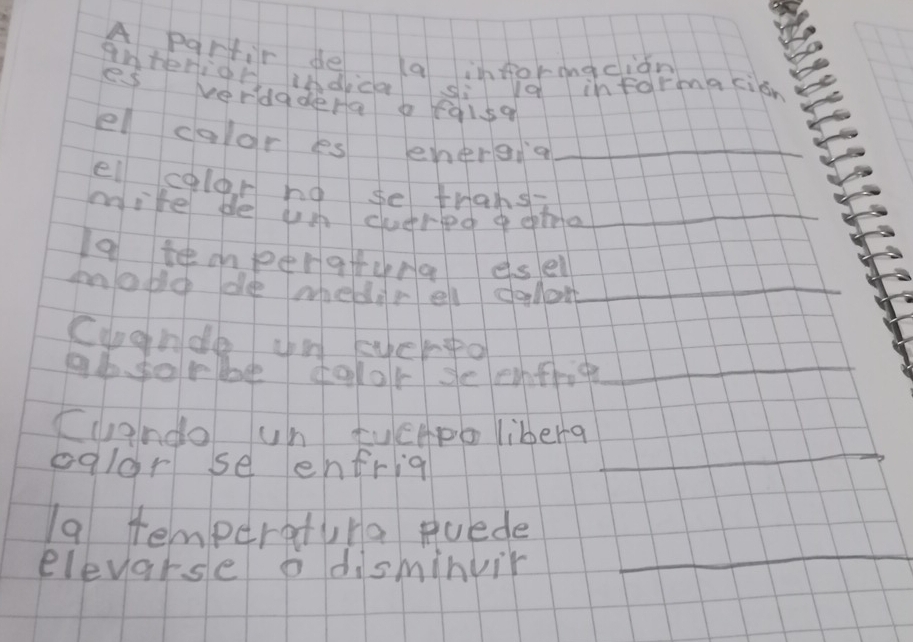 A partir de la información
anterior indica si la información
es verdadera o falsa
el calor es energía
el calor no se trans-
mite de un cuerpo a otro
la temperatura es el
modo de medir el calor
Cuando un cuerpo
absorbe calor se enfria
Cuando un cuerpo libera
calor se enfria
la temperatura puede
elevarse o disminuir